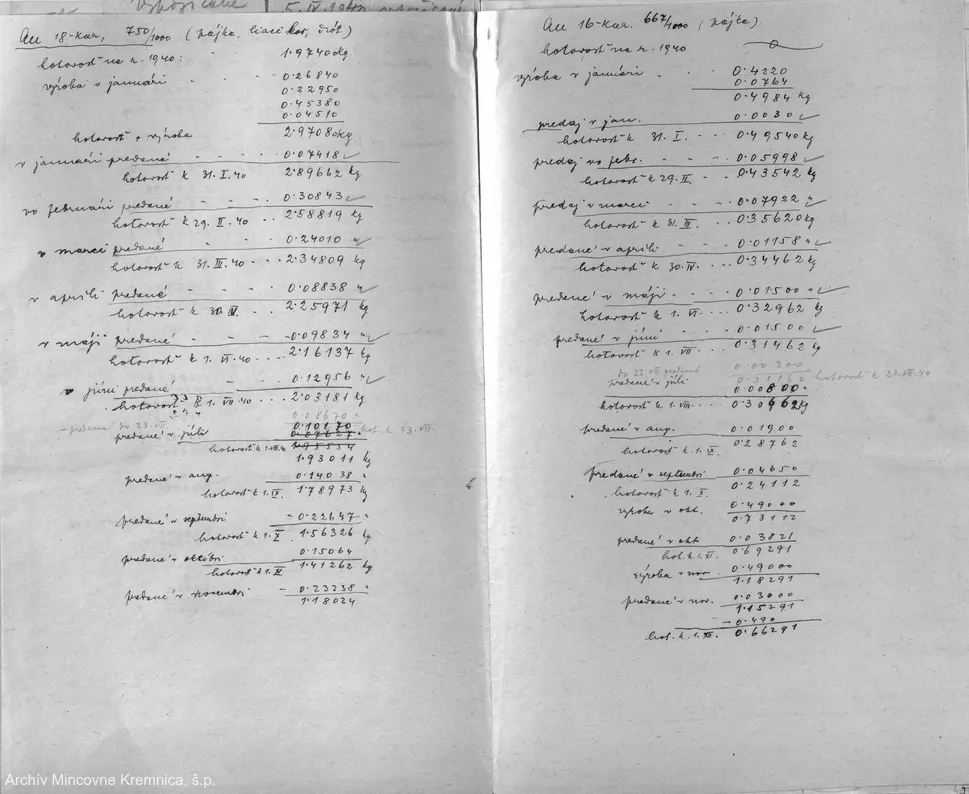 5. IV. 1940
Au 18-kar, 750/1000 (nájka, liaci kov, drôt)
hotovosť na r. 1940: 1·9740 dg
výroba v januári - - - 0·26840
0·22950
0·45380
0·04510
hotovosť + výroba 2·97080 kg
v januári predané - - - 0·07418
hotovosť k 31. I. 40 2·89662 kg
vo februári predané - - - 0·30843
hotovosť k 29. II. 40 ... 2·58819 kg
v marci predané - - - 0·24010 "
hotovosť k 31. III. 40 ... 2·34809 kg
v apríli predané - - - 0·08838 "
hotovosť k 30. IV. ... 2·25971 kg
v máji predané - - - 0·09834 "
hotovosť k 1. VI. 40 ... 2·16137 kg
v júni predané - - - 0·12956 "
hotovosť k 1. VII 40 ... 2·03181 kg
0·08670
- predané do 23. VII. 0·10170 hot. k 23. VII.
predané v júli 0·07627
hotovosť k 1. VIII. 1·95554
1·93011 kg
predané v aug. 0·14038
hotovosť k 1. IX. 1·78973 kg
predané v septembri - 0·22647
hotovosť k 1. X. 1·56326 kg
predané v októbri 0·15064
hotovosť k 1. XI 1·41262 kg
predané v novembri - 0·23238
1·18024
Au 16-kar. 667/1000 (nájka)
hotovosť na r. 1940 0
výroba v januári - - - 0·4220
0·0764
0·4984 kg
predaj v jan. - - - 0·0030
hotovosť k 31. I. ... 0·49540 kg
predaj vo febr. - - - 0·05998
hotovosť k 29. II. ... 0·43542 kg
predaj v marci - - - 0·07922 "
hotovosť k 31. III. ... 0·35620 kg
predané v apríli - - - 0·01158 "
hotovosť k 30. IV. ... 0·34462 kg
predané v máji - - - 0·01500 "
hotovosť k 1. VI. ... 0·32962 kg
predané v júni - - - 0·01500
hotovosť k 1. VII. ... 0·31462 kg
do 23. VII. predané 0·00300
0·31162 hotovosť k 23. VII. 40
predané v júli 0·00800
hotovosť k 1. VIII. ... 0·30662 kg
predané v aug. ... 0·01900
hotovosť k 1. IX. 0·28762
predané v septembri 0·04650
hotovosť k 1. X. 0·24112
výroba v okt. 0·49000
0·73112
predané v okt 0·03821
hot. k 1. XI. 0·69291
výroba v nov. 0·49000
1·18291
predané v nov. 0·03000
1·15291
- 0·490
hot. k 1. XII. 0·66291
Archív Mincovne Kremnica, š.p.